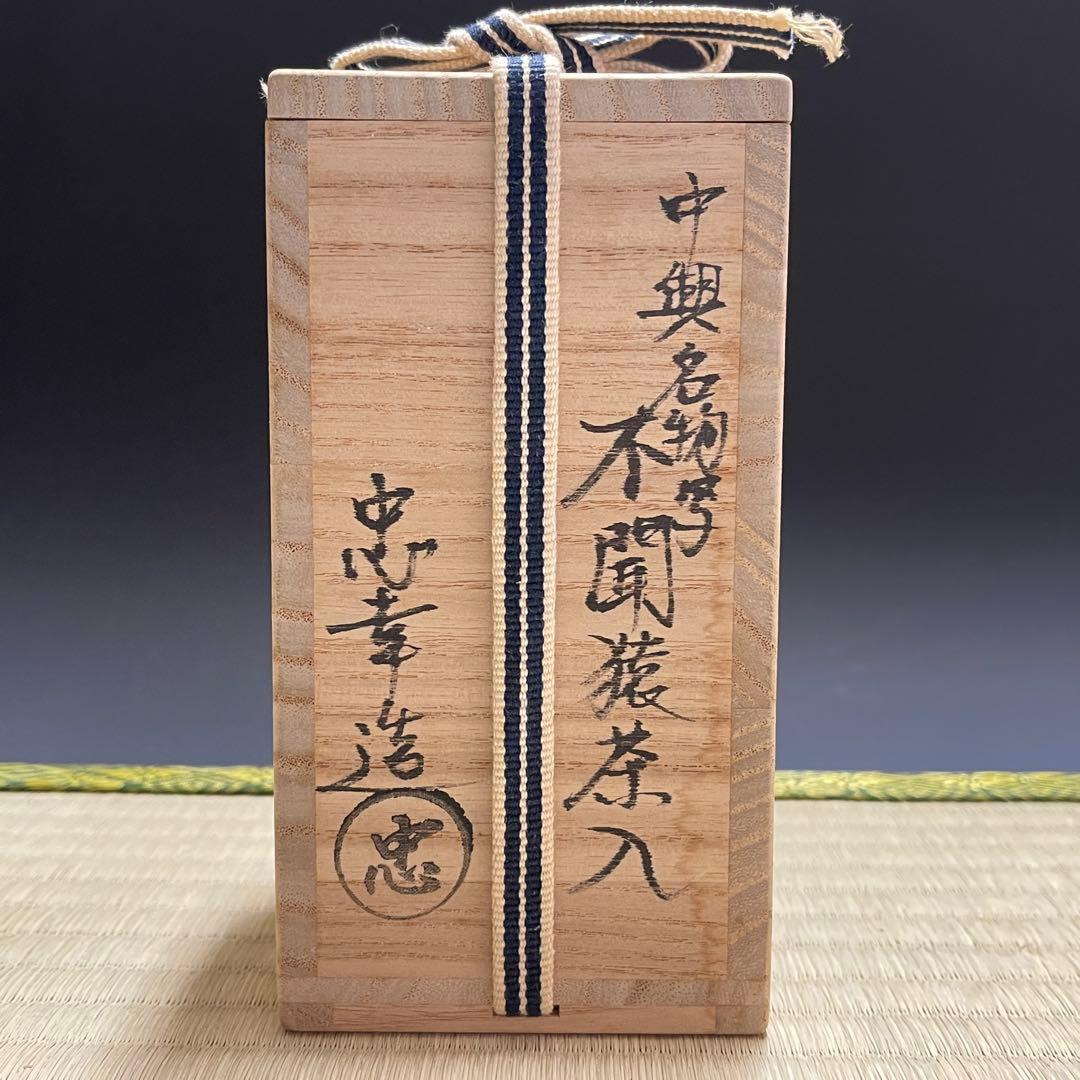 中興名物写
不聞猿茶入
忠幸造
忠